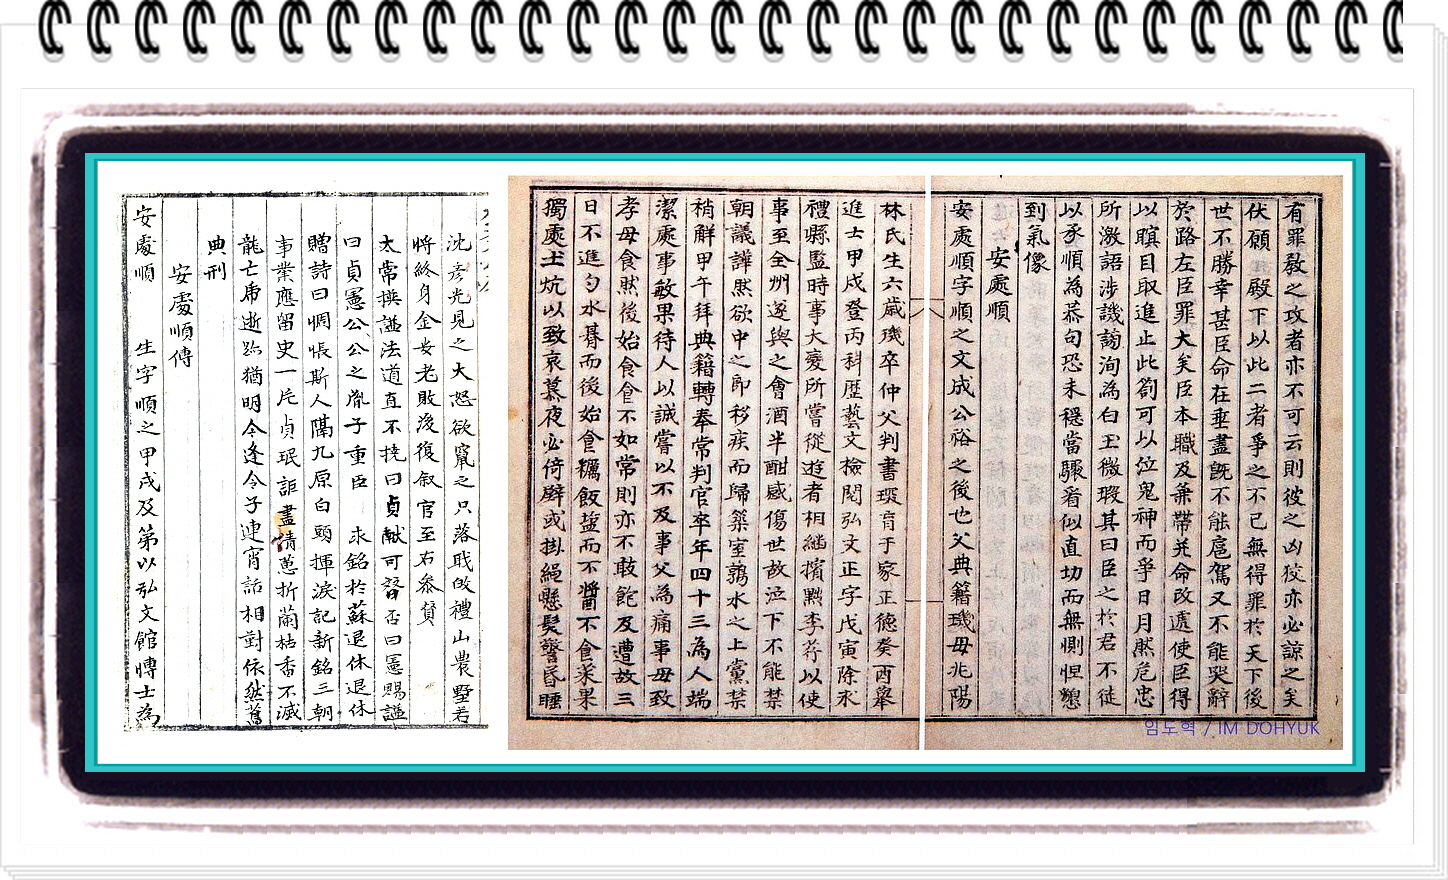 有罪敎之攻者亦不可云則彼之凶狡亦必諒之矣
伏願 殿下以此二者爭之不已無得罪於天下後
世不勝幸甚臣命在垂盡旣不能扈駕又不能哭辭
於路左臣罪大矣臣本職及兼帶並命改遞使臣得
以瞑目取進止此箚可以泣鬼神而爭日月然危忠
所激語涉譏訪洵為白玉微瑕其曰臣之於君不徒
以承順為恭句恐未穩當驟看似直切而無惻怛懇
到氣像
安處順
安處順字順之文成公裕之後也父典籍璣母兆陽
林氏生六歲璣卒仲父判書琛育于家正德癸酉擧
進士甲戌登丙科歷藝文檢閱弘文正字戊寅除求
禮縣監時事大變所嘗從遊者相繼擯黜李荇以使
事至全州遂與之會酒半酣感傷世故泣下不能禁
朝議譁然欲中之卽移疾而歸築室鶉水之上黨禁
稍解甲午拜典籍轉奉常判官卒年四十三為人端
潔處事敏果待人以誠嘗以不及事父為痛事母致
孝母食然後始食食不如常則亦不敢飽及遭故三
日不進勺水朞而後始食糲飯鹽而不醬不食菜果
獨處土炕以致哀慕夜必倚壁或掛繩懸髮警昏睡
沈彦光見之大怒欲竄之只落職故禮山農墅若
將終身金安老敗後復敘官至右參贊
太常撰謚法道直不撓曰貞献可替否曰憲賜謚
曰貞憲公公之胤子重臣 求銘於蘇退休退休
贈詩曰惆悵斯人隔九原白頭揮淚記新銘三朝
事業應留史一片貞珉詎盡情蕙折蘭枯香不滅
龍亡虎逝跡猶明今逢令子連宵話相對依然舊
典刑
安處順傳
安處順 生字順之甲戌及第以弘文館博士為
임도혁 / IM DOHYUK